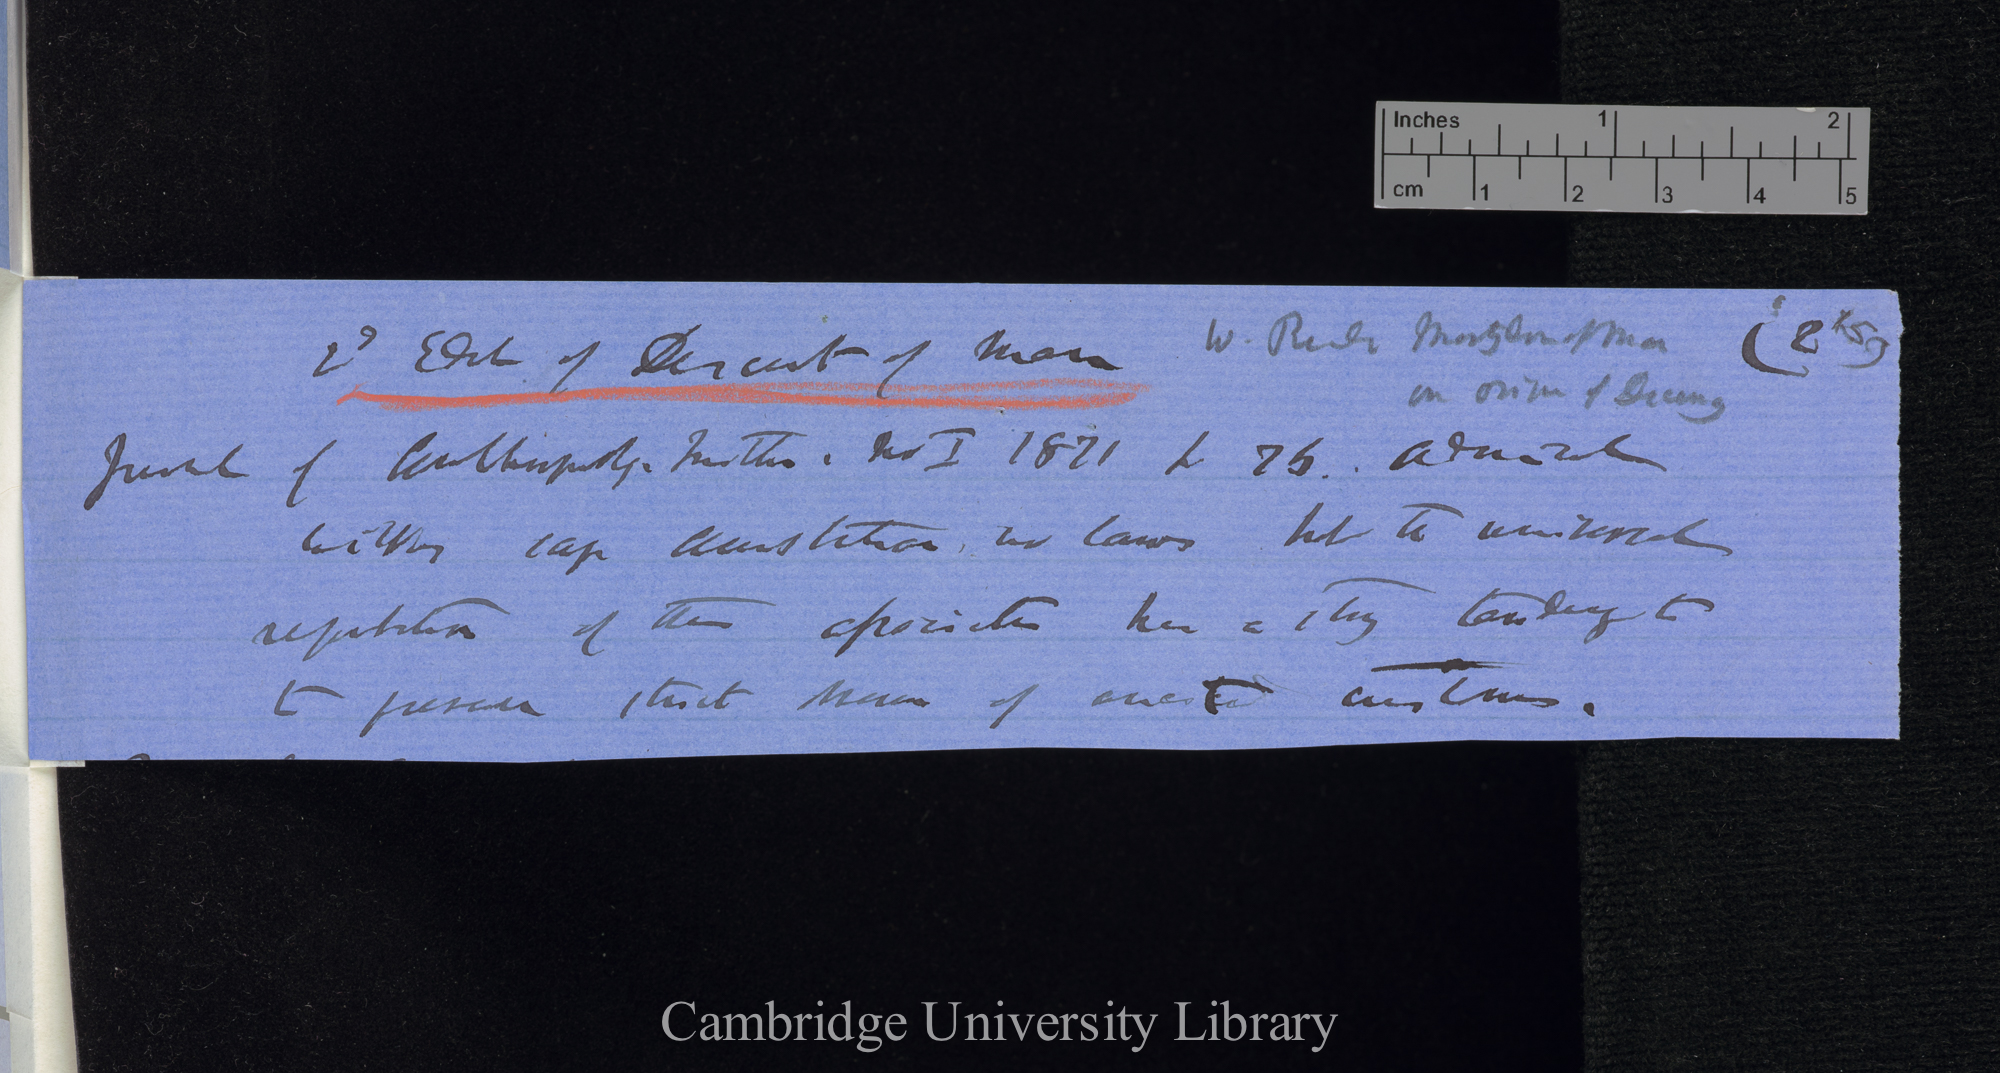 Inches 1 2
cm 1 2 3 4 5
2d Edit of Descent of Man
W. Reade Martyrdom of Man
on origin of
(2
Journal of Antropolog. Instit. No I 1871 p 76. Admiral
says Australian no laws but the universal
repetition of their has a strong tendency to
to preserve strict of ancient customs.
Cambridge University Library